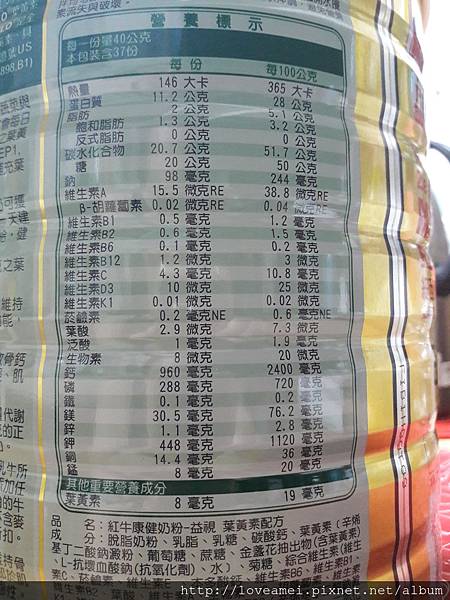 營養標示
每一份量40公克
本包裝含37份
每份 每100公克
熱量 146 大卡 365 大卡
蛋白質 11.2 公克 28 公克
脂肪 公克 5.1 公克
飽和脂肪 1.3 公克 3.2 公克
反式脂肪 0 公克 0 公克
碳水化合物 20.7 公克 51.7 公克
糖 20 公克 50 公克
鈉 98 毫克 244 毫克
維生素A 15.5 微克RE 38.8 微克RE
β-胡蘿蔔素 0.02 微克RE 0.04 微克RE
維生素B1 0.5 毫克 1.2 毫克
維生素B2 0.6 毫克 1.5 毫克
維生素B6 0.1 毫克 0.2 毫克
維生素B12 1.2 微克 3 微克
維生素C 4.3 毫克 10.8 毫克
維生素D3 10 微克 25 微克
維生素K1 0.01 微克 0.02 微克
菸鹼素 0.2 毫克NE 0.6 毫克NE
葉酸 2.9 微克 7.3 微克
泛酸 1 毫克 1.9 毫克
生物素 8 微克 20 微克
鈣 960 毫克 2400 毫克
磷 288 毫克 720 毫克
鐵 0.1 毫克 0.2 毫克
鎂 30.5 毫克 76.2 毫克
鋅 1.1 毫克 2.8 毫克
鉀 448 毫克 1120 毫克
銅 14.4 毫克 36 毫克
錳 8 毫克 20 毫克
其他重要營養成分
葉黃素 8 毫克 19 毫克
品名：紅牛康健奶粉-益視 葉黃素配方
成分：脫脂奶粉、乳脂、乳糖、碳酸鈣、葉黃素(辛烯
基丁二酸鈉澱粉、葡萄糖、蔗糖、金盞花抽出物(含葉黃素)
、L-抗壞血酸鈉(抗氧化劑)、水)、菊糖、綜合維生素(維生
http://loveamei.pixnet.net/album